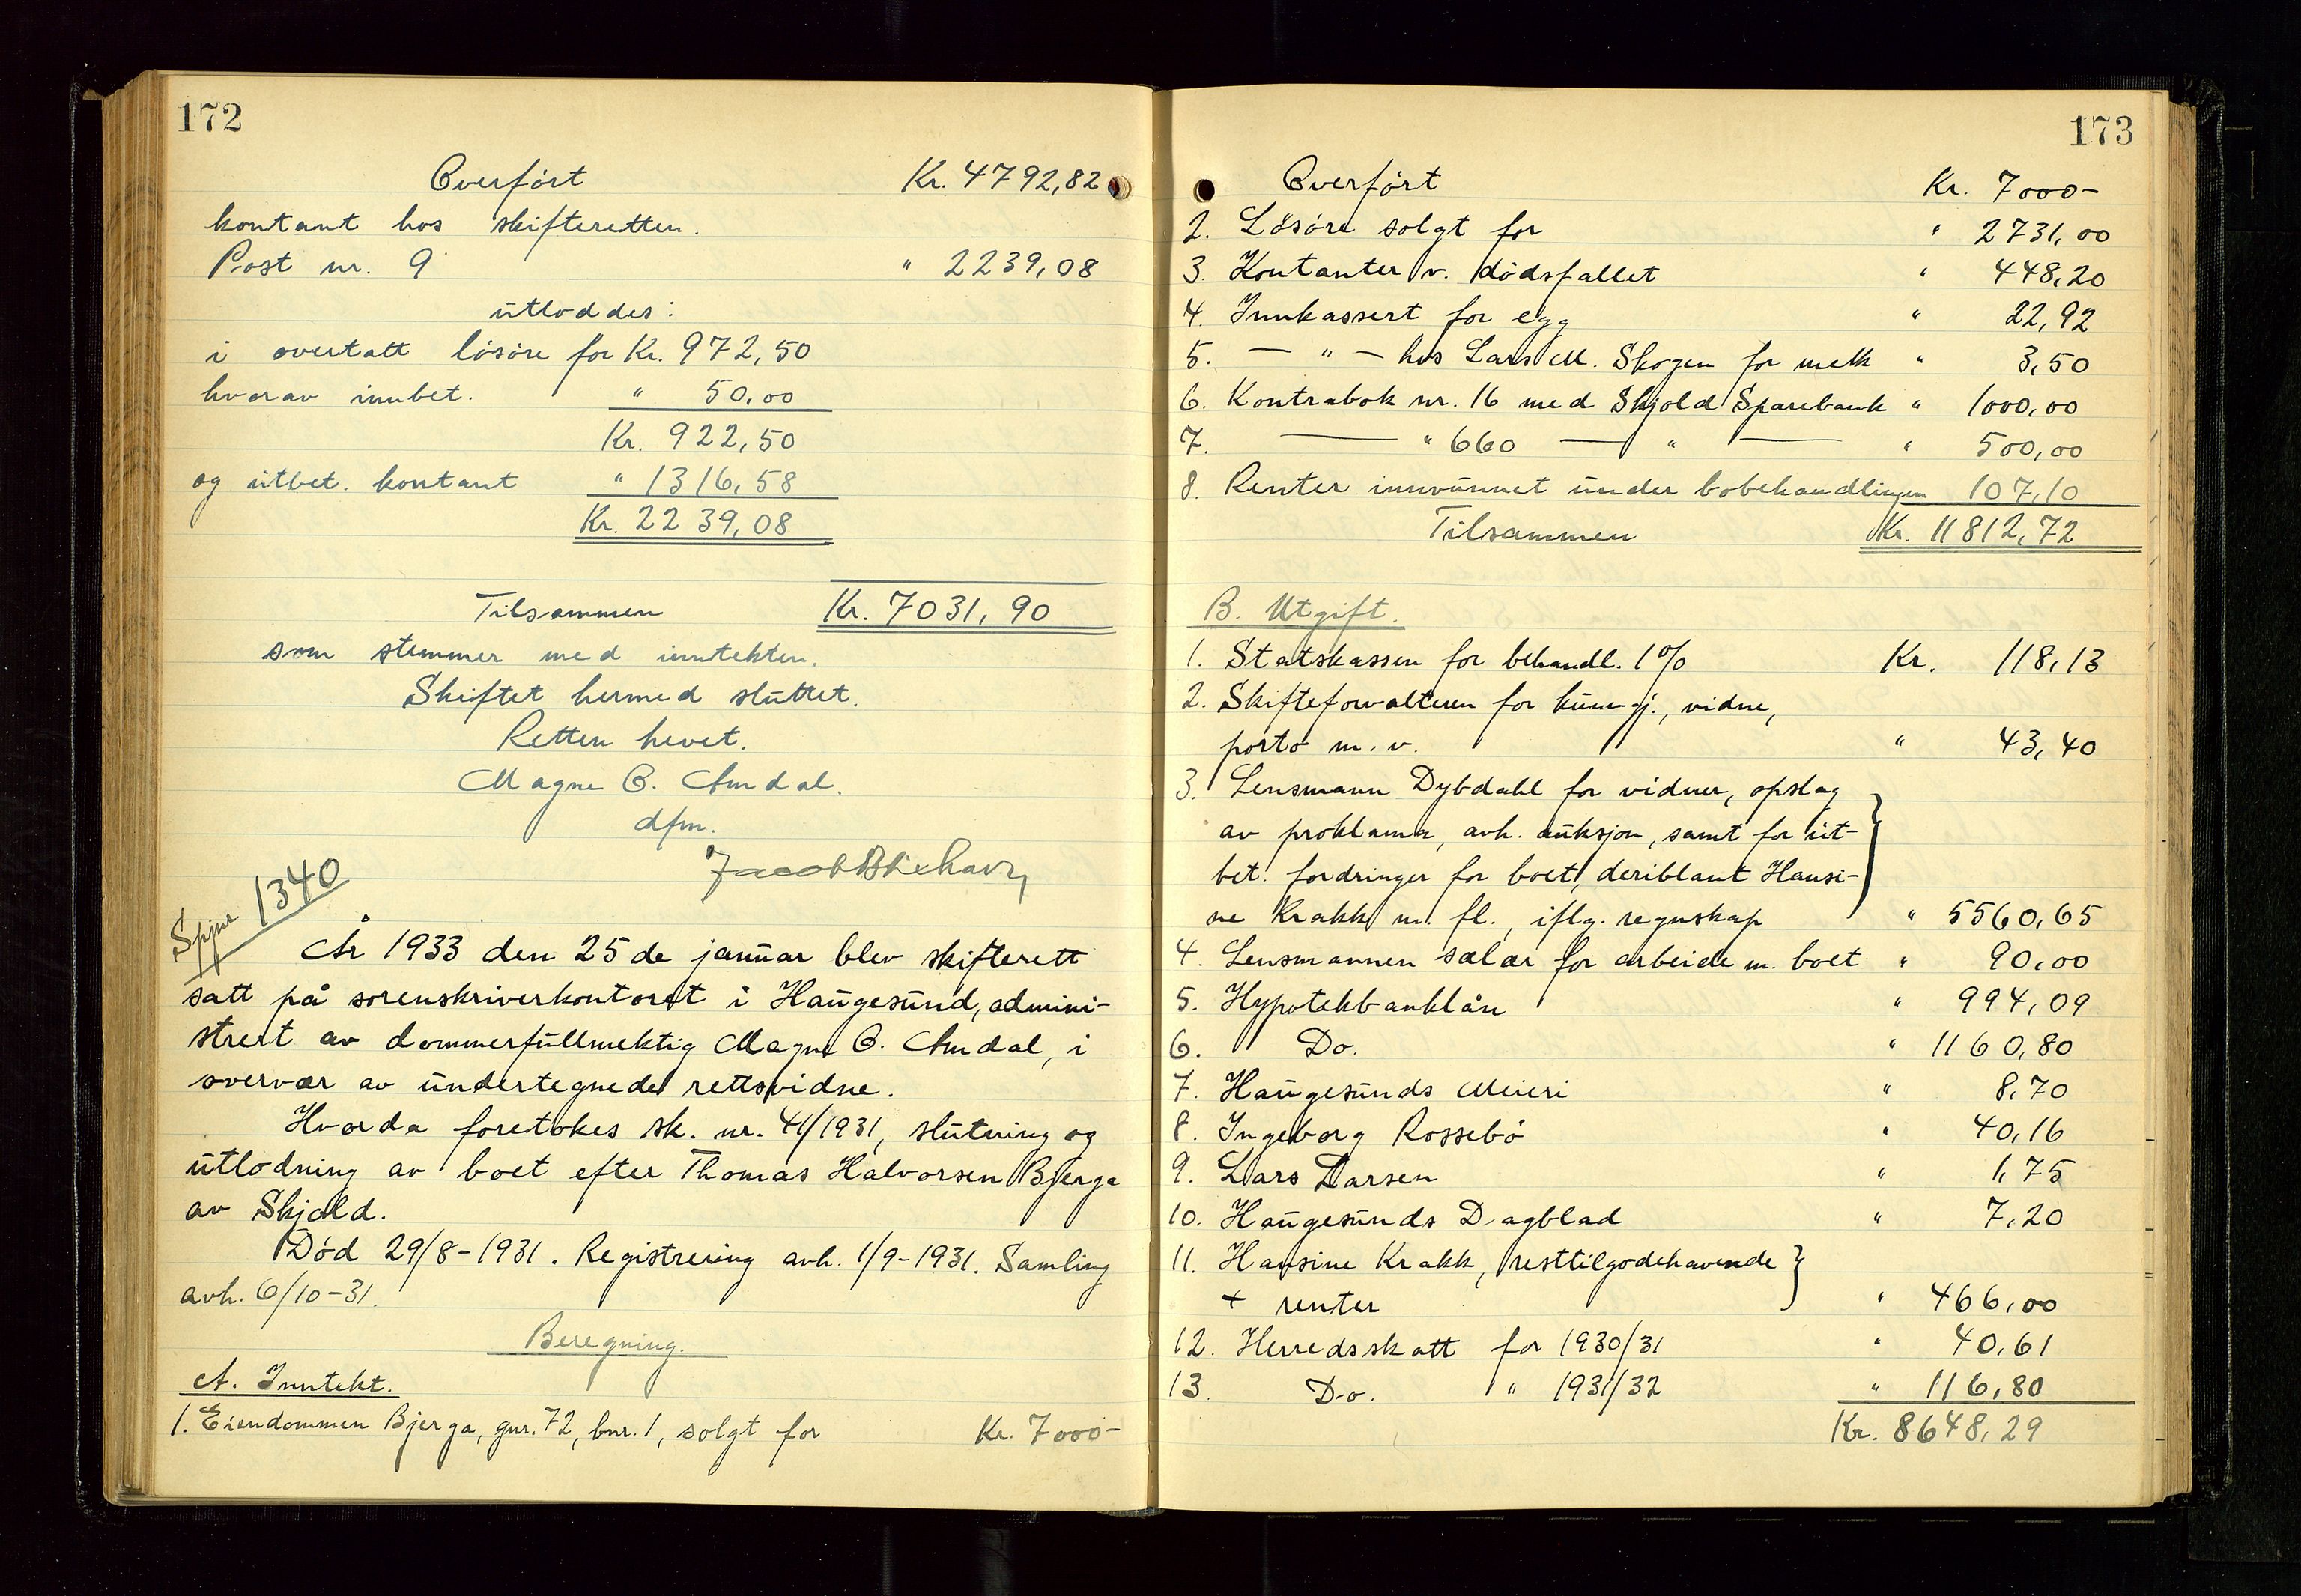 172
Overført Kr. 4792,82
kontant hos skifteretten.
Post nr. 9 " 2239,08
utloddes:
i overtatt løsøre for Kr. 972,50
hvorav innbet. " 50,00
Kr. 922,50
og utbet. kontant " 1316,58
Kr. 2239,08
Tilsammen Kr. 7031,90
som stemmer med inntekten.
Skiftet hermed sluttet.
Retten hevet.
Magne O. Amdal.
dfm.
1340
År 1933 den 25 de januar blev skifterett
satt på sorenskriverkontoret i Haugesund, admini-
strert av dommerfullmektig Magne O. Amdal, i
overvær av undertegnede rettsvidne.
Hvorda foretokes sk. nr. 41/1931, slutning og
utlodning av boet efter Thomas Halvorsen Bjerga
av Skjold.
Død 29/8-1931. Registrering avh. 1/9-1931. Samling
avh. 6/10-31.
Beregning.
A. Inntekt.
1. Eiendommen Bjerga, gnr. 72, bnr. 1, solgt for Kr. 7000-
173
Overført Kr. 7000-
2. Løsøre solgt for " 2731,00
3. Kontanter v. dødsfallet " 448,20
4. Innkassert for egg " 22,92
5. — " — hos Lars M. Skogen for melk " 3,50
6. Kontrabok nr. 16 med Skjold Sparebank " 1000,00
7. — " 660 — " — " 500,00
8. Renter innvunnet under bobehandlingen 107,10
Tilsammen Kr. 11812,72
B. Utgift.
1. Statskassen for behandl. 1% Kr. 118,13
2. Skifteforvalteren for kunngj., vidne,
porto m. v. " 43,40
3. Lensmann Dybdahl for vidner, opslag
av proklama, avh. auksjon, samt for ut-
bet. fordringer for boet, deriblant Hansi-
ne Krakk m. fl., iflg. regnskap " 5560,65
4. Lensmannen salær for arbeide m. boet " 90,00
5. Hypotekbanklån " 994,09
6. Do. " 1160,80
7. Haugesunds Meieri " 8,70
8. Ingeborg Rossebø " 40,16
9. Lars Larsen " 1,75
10. Haugesunds Dagblad " 7,20
11. Hansine Krakk, resttilgodehavende
+ renter " 466,00
12. Herredsskatt for 1930/31 " 40,61
13. Do. " 1931/32 " 116,80
Kr. 8648,29